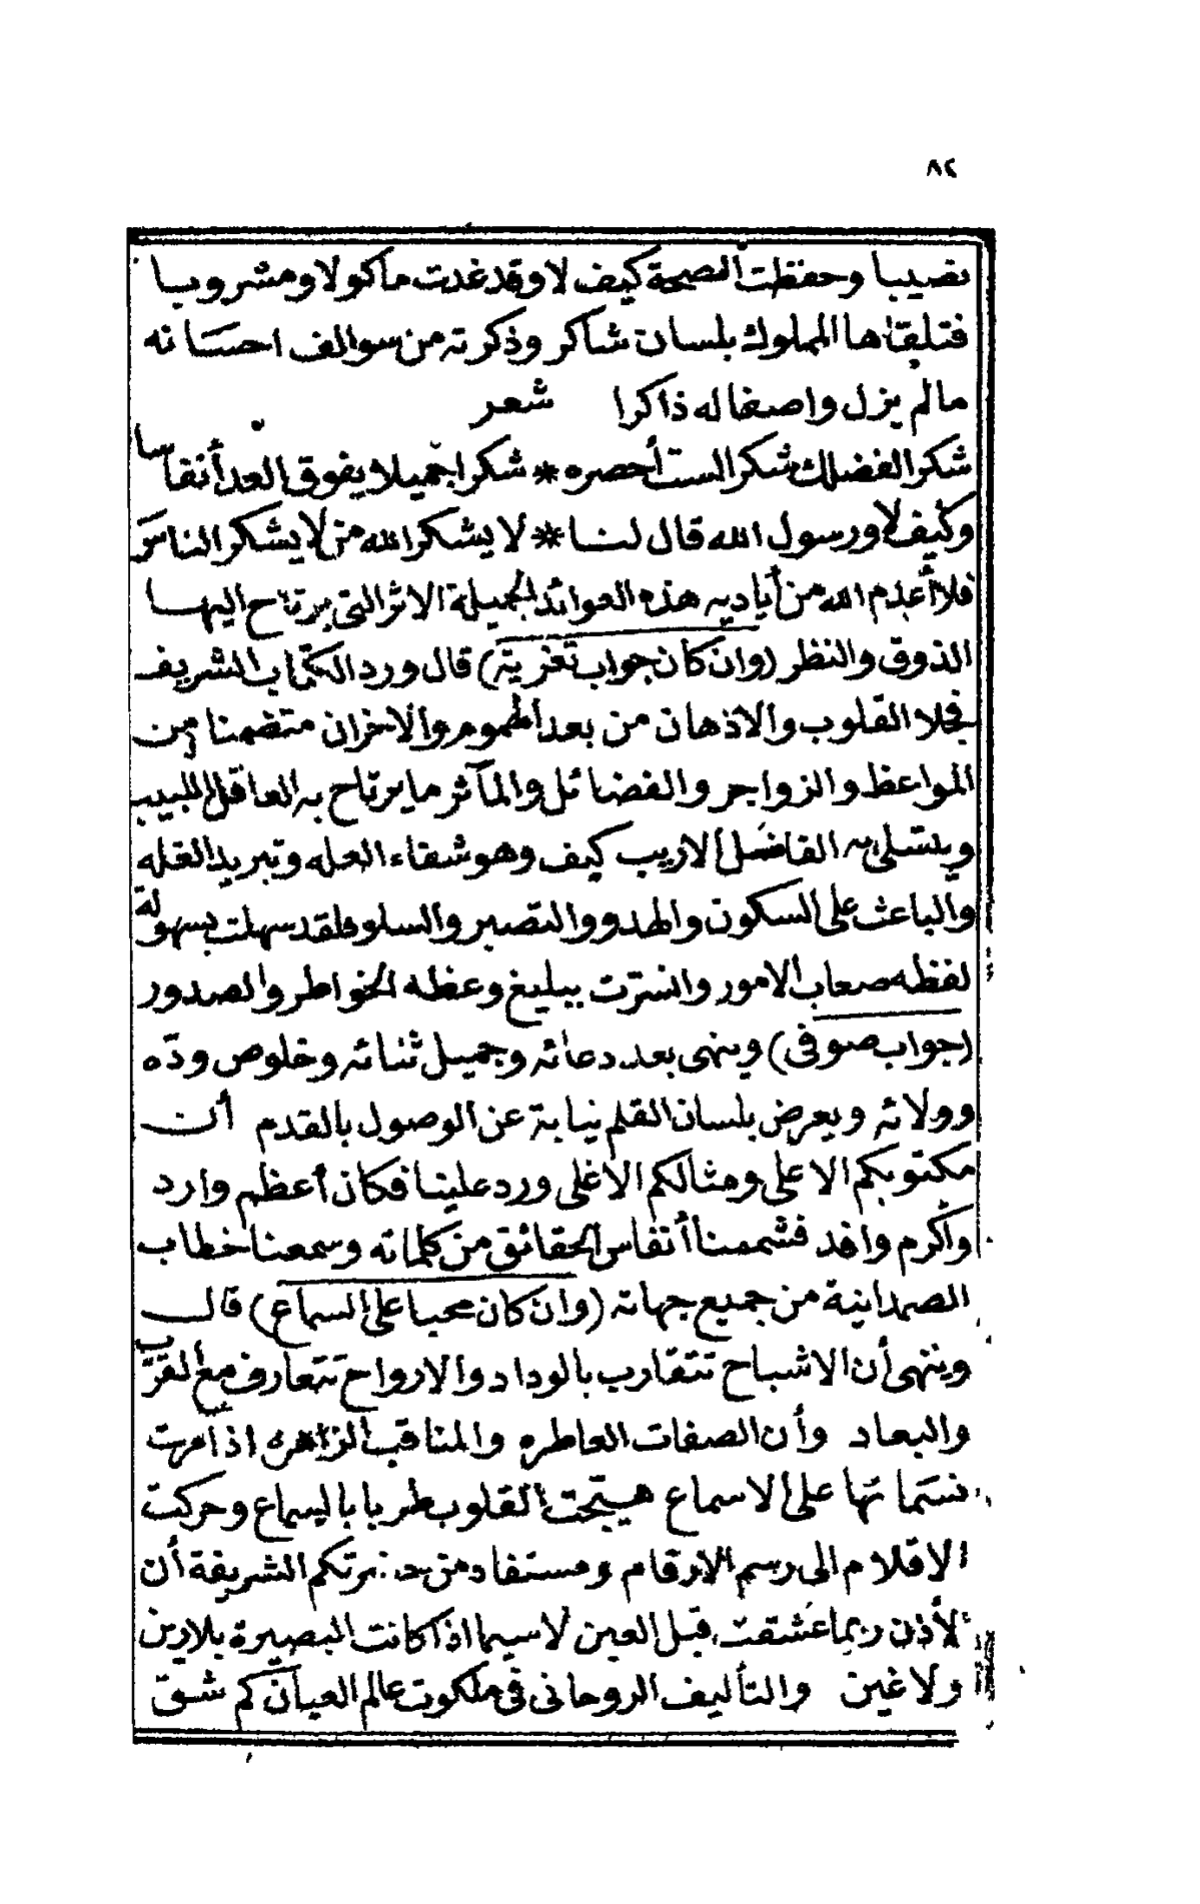 ٨٢
نصيبا وحفظت الصحة كيف لا وقد غدت مأكولا ومشروبا
فتلقاها المملوك بلسان شاكر وذكرته من سوالف احسانه
مالم يزل واصفا له ذاكرا شعر
شكرا لفضلك شكرا لست أحصره * شكرا جميلا يفوق العد أنفاسا
وكيف لا ورسول الله قال لنا * لا يشكر الله من لا يشكر الناس
فلا أعدم الله من أياديه هذه العوائد الجميلة الاثر التى يرتاح اليها
الذوق والنظر (وان كان جواب تعزية) قال ورد الكتاب الشريف
فجلا القلوب والاذهان من بعد الهموم والاحزان متضمنا من
المواعظ والزواجر والفضائل والمآثر ما يرتاح به العاقل اللبيب
ويتسلى به الفاضل الاريب كيف وهو شفاء العله وتبريد الغله
والباعث على السكون والهدوو والتصبر والسلو فلقد سهلت بسهولة
لفظه صعاب الامور وانسرت ببليغ وعظه الخواطر والصدور
(جواب صوفى) وينهى بعد دعائه وجميل ثنائه وخلوص وده
وولائه ويعرض بلسان القلم نيابة عن الوصول بالقدم أن
مكتوبكم الاعلى ومثالكم الاغلى ورد علينا فكان أعظم وارد
وأكرم وافد فشممنا أنفاس الحقائق من كلماته وسمعنا خطاب
الصمدانية من جميع جهاته (وان كان محبا على السماع) قال
وينهى أن الاشباح تتقارب بالوداد والارواح تتعارف مع القرب
والبعاد وأن الصفات العاطره والمناقب الزاهره اذا مرت
نسماتها على الاسماع هيجت القلوب طربا بالسماع وحركت
الاقلام الى رسم الارقام ومستفاد من الشريفة أن
الأذن ربما عشقت قبل العين لاسيما اذا كانت البصيرة بلا رين
ولا غين والتأليف الروحانى فى ملكوت عالم العيان كم شق